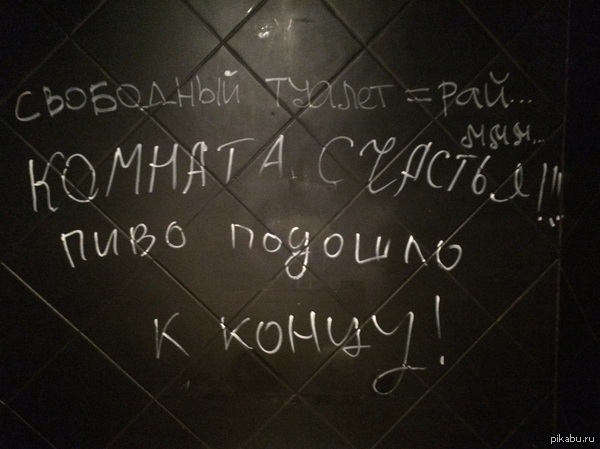 свободный туалет = рай...
ммм...
КОМНАТА СЧАСТЬЯ!!!
пиво подошло
к концу!
pikabu.ru